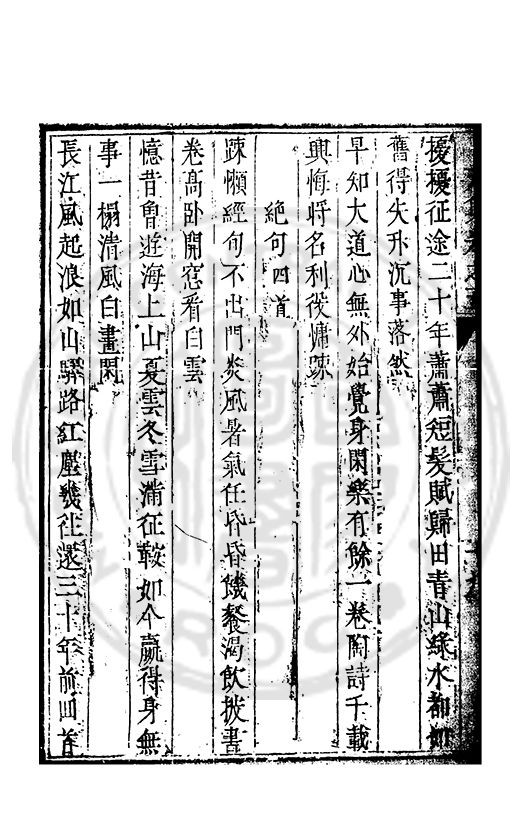 擾擾征途二十年蕭蕭短髮賦歸田青山綠水都如
舊得失升沉事落然
早知大道心無外始覺身閑樂有餘一卷陶詩千載
興悔將名利役慵疎
絕句四首
疎懶經旬不出門炎風暑氣任昏昏饑餐渴飲披書
卷高卧開窓看白雲
憶昔魯遊海上山夏雲冬雪滿征鞍如今贏得身無
事一榻清風白晝閑
長江風起浪如山驛路紅塵幾往還三十年前回首